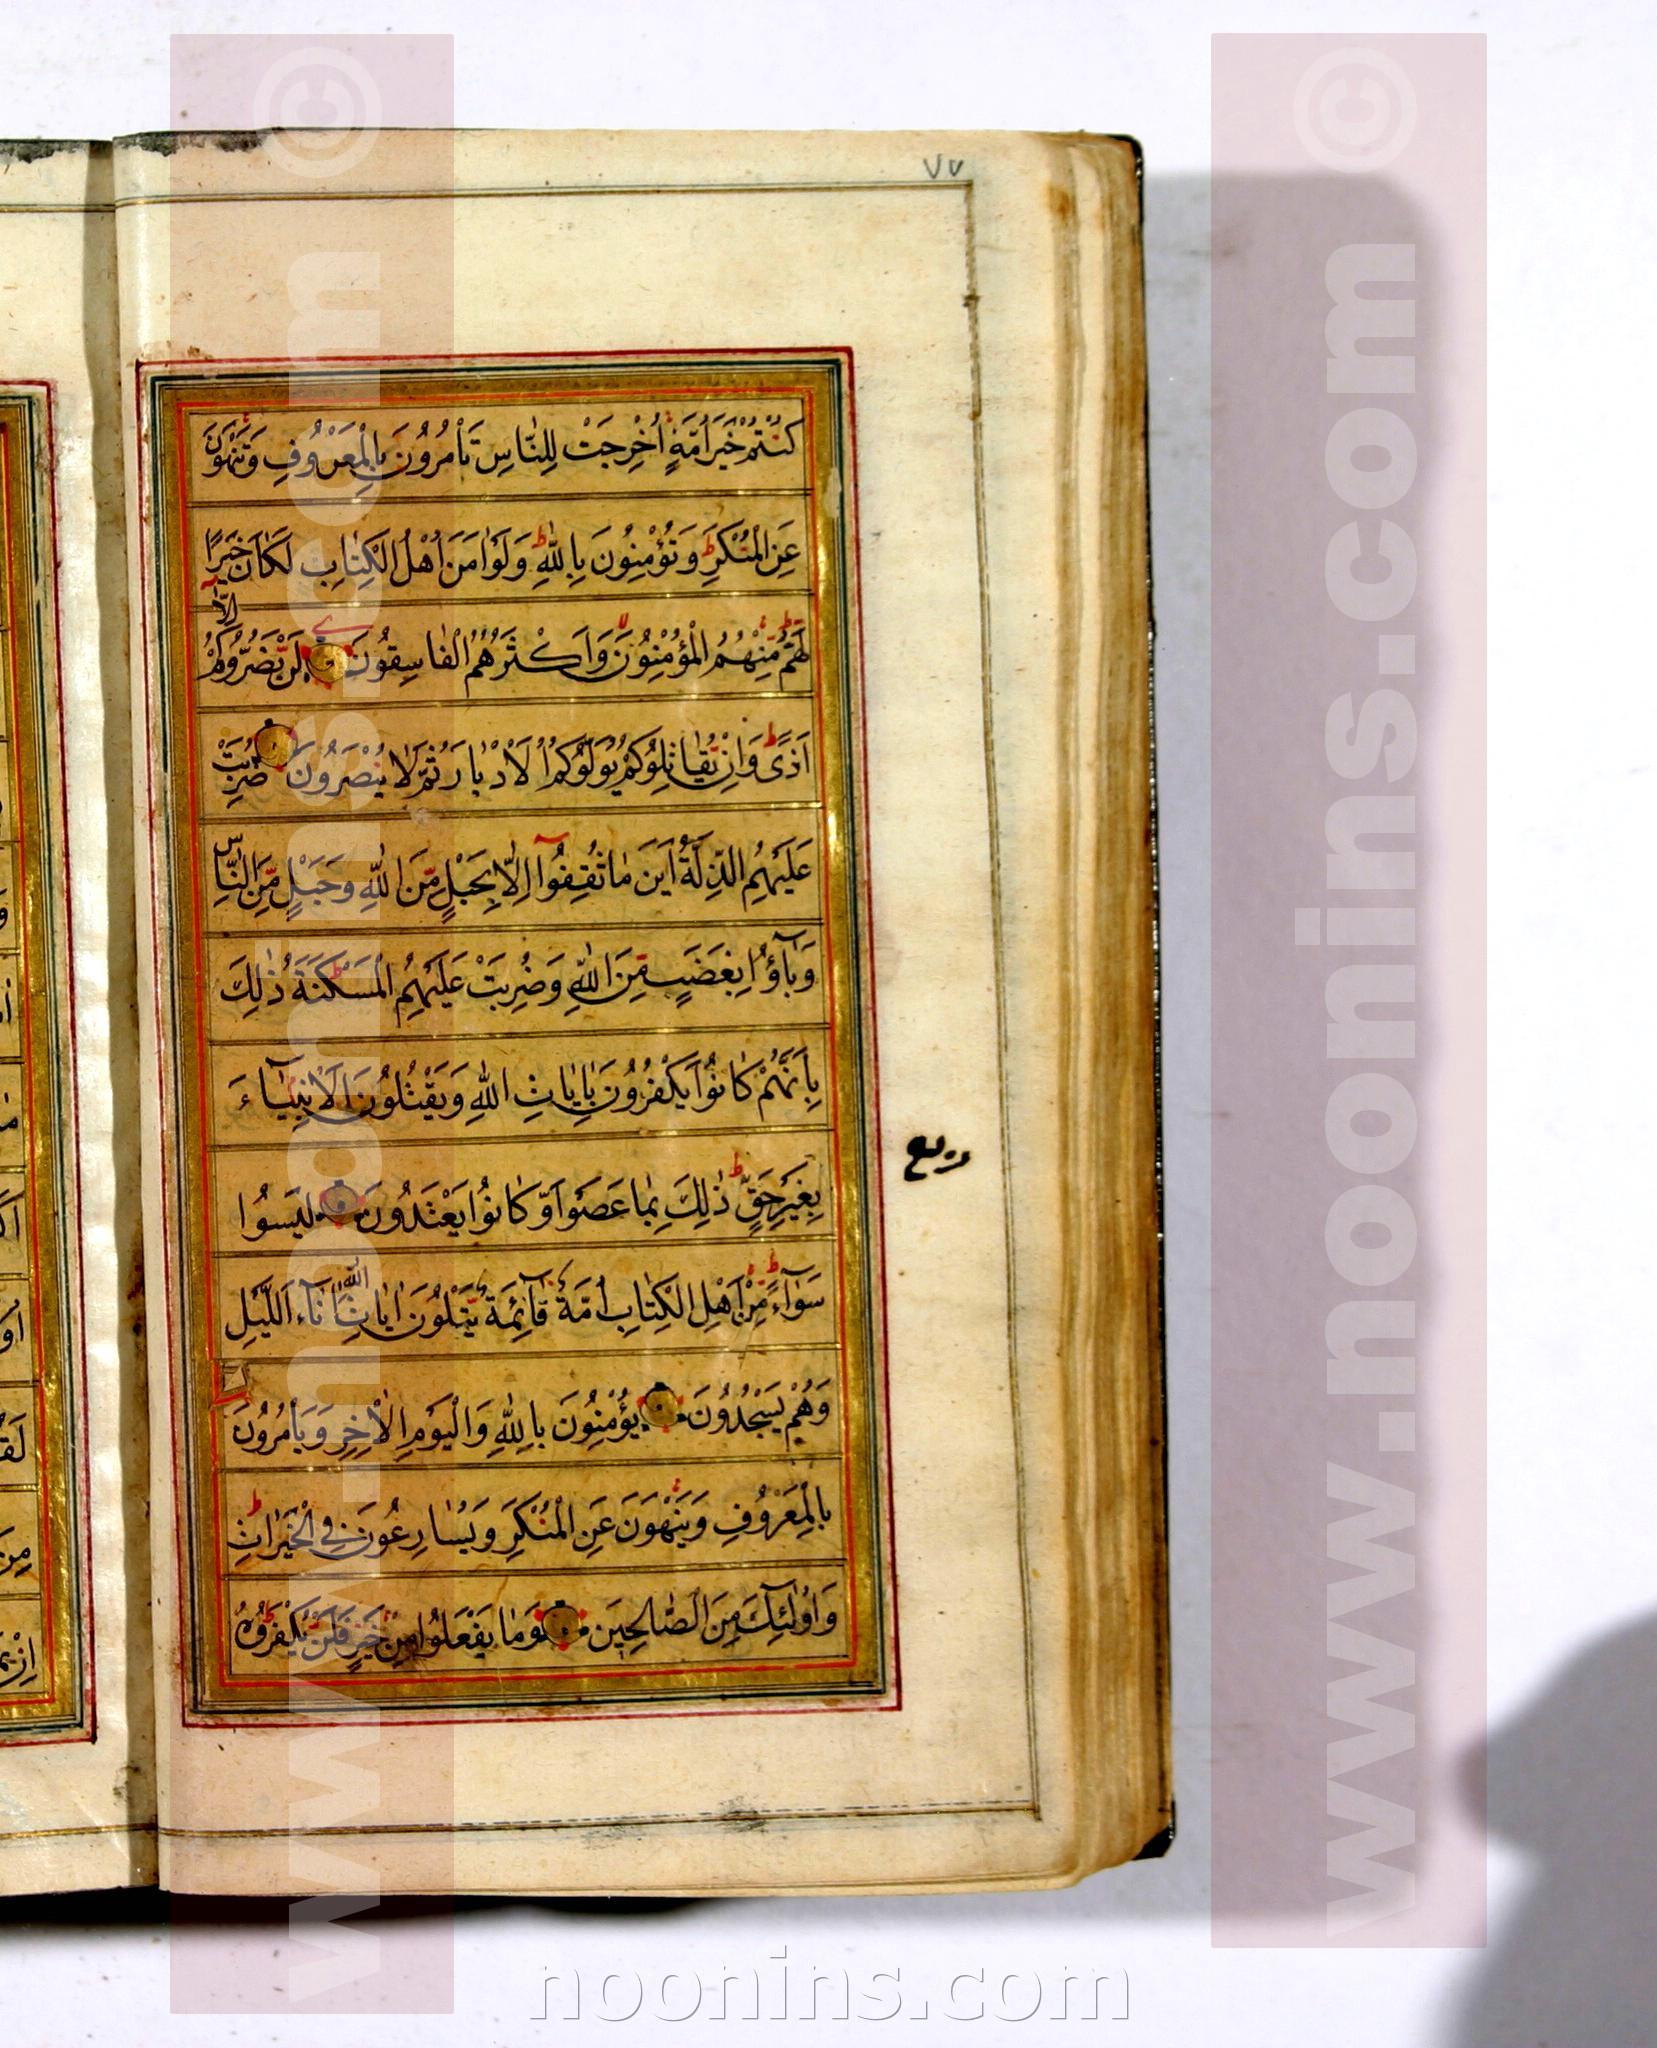 ٧٧
كُنْتُمْ خَيْرَ اُمَّةٍ اُخْرِجَتْ لِلنَّاسِ تَاْمُرُونَ بِالْمَعْرُوفِ وَتَنْهَوْنَ
عَنِ الْمُنْكَرِ وَتُؤْمِنُونَ بِاللّٰهِ وَلَوْ اٰمَنَ اَهْلُ الْكِتٰابِ لَكٰانَ خَيْرًا
لَهُمْ مِنْهُمُ الْمُؤْمِنُونَ وَاَكْثَرُهُمُ الْفٰاسِقُونَ لَنْ يَضُرُّوكُمْ اِلّٰا
اَذًى وَاِنْ يُقٰاتِلُوكُمْ يُوَلُّوكُمُ الْاَدْبٰارَ ثُمَّ لٰا يُنْصَرُونَ ضُرِبَتْ
عَلَيْهِمُ الذِّلَّةُ اَيْنَ مٰا ثُقِفُوٓا اِلّٰا بِحَبْلٍ مِّنَ اللّٰهِ وَحَبْلٍ مِّنَ النّٰاسِ
وَبٰآؤُا بِغَضَبٍ مِّنَ اللّٰهِ وَضُرِبَتْ عَلَيْهِمُ الْمَسْكَنَةُ ذٰلِكَ
بِاَنَّهُمْ كٰانُوا يَكْفُرُونَ بِاٰيٰاتِ اللّٰهِ وَيَقْتُلُونَ الْاَنْبِيٰٓاءَ
بِغَيْرِ حَقٍّ ذٰلِكَ بِمٰا عَصَوْا وَّكٰانُوا يَعْتَدُونَ لَيْسُوا
سَوٰٓاءً مِنْ اَهْلِ الْكِتٰابِ اُمَّةٌ قٰٓائِمَةٌ يَّتْلُونَ اٰيٰاتِ اللّٰهِ اٰنٰٓاءَ اللَّيْلِ
وَهُمْ يَسْجُدُونَ يُؤْمِنُونَ بِاللّٰهِ وَالْيَوْمِ الْاٰخِرِ وَيَاْمُرُونَ
بِالْمَعْرُوفِ وَيَنْهَوْنَ عَنِ الْمُنْكَرِ وَيُسٰارِعُونَ فِي الْخَيْرٰاتِ
وَاُولٰٓئِكَ مِنَ الصّٰالِحِينَ وَمٰا يَفْعَلُوا مِنْ خَيْرٍ فَلَنْ يُكْفَرُوهُ
ربع
www.noonins.com ©
www.noonins.com ©
noonins.com